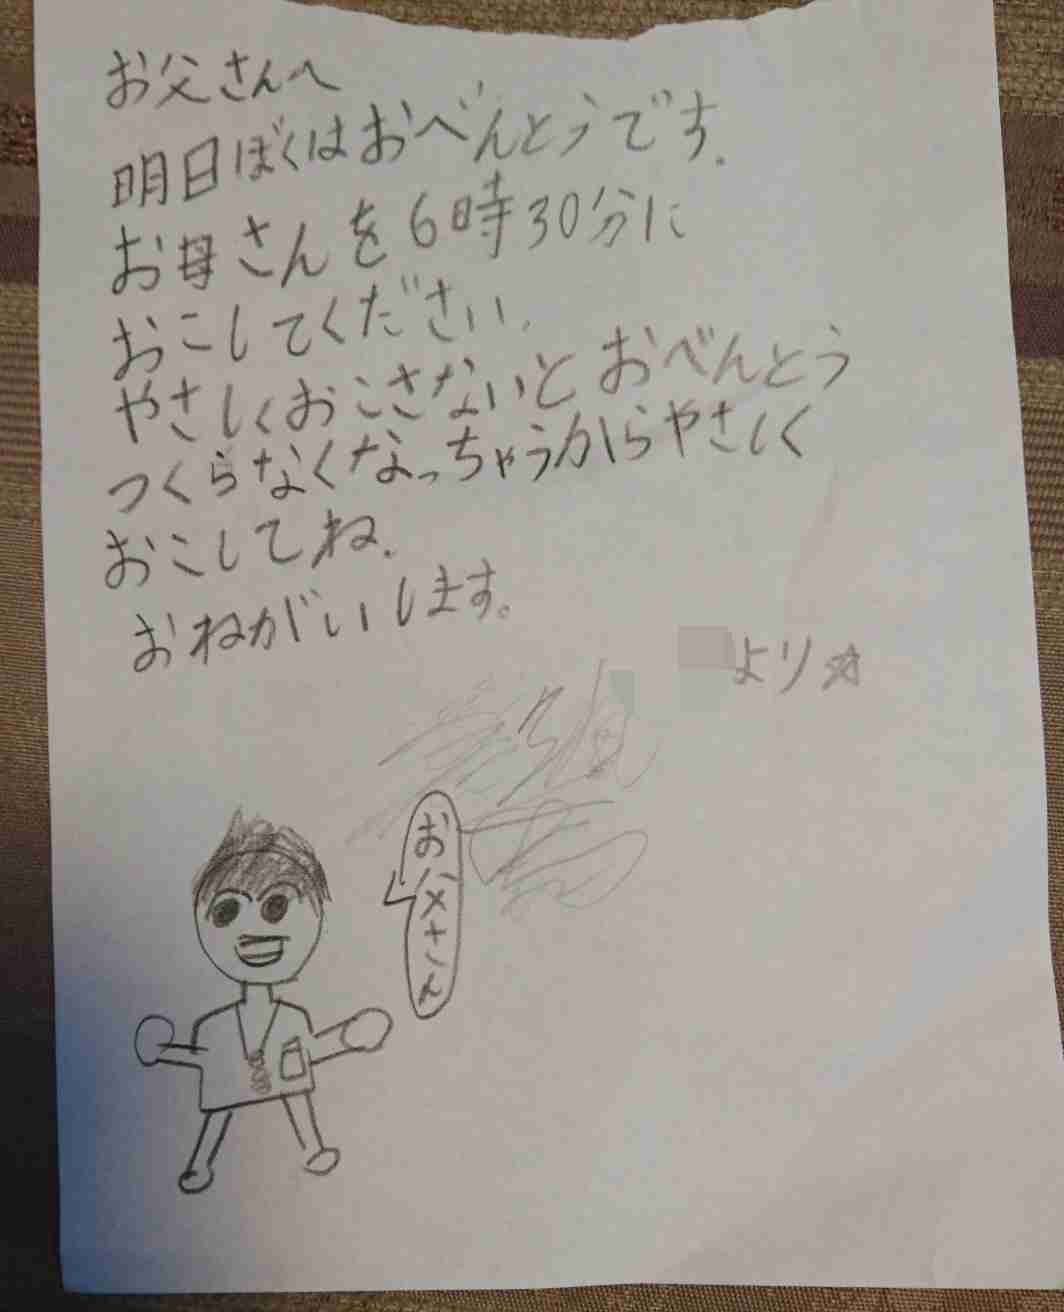 お父さんへ
明日ぼくはおべんとうです.
お母さんを6時30分に
おこしてください.
やさしくおこさないとおべんとう
つくらなくなっちゃうからやさしく
おこしてね.
おねがいします。
より☆
お父さん